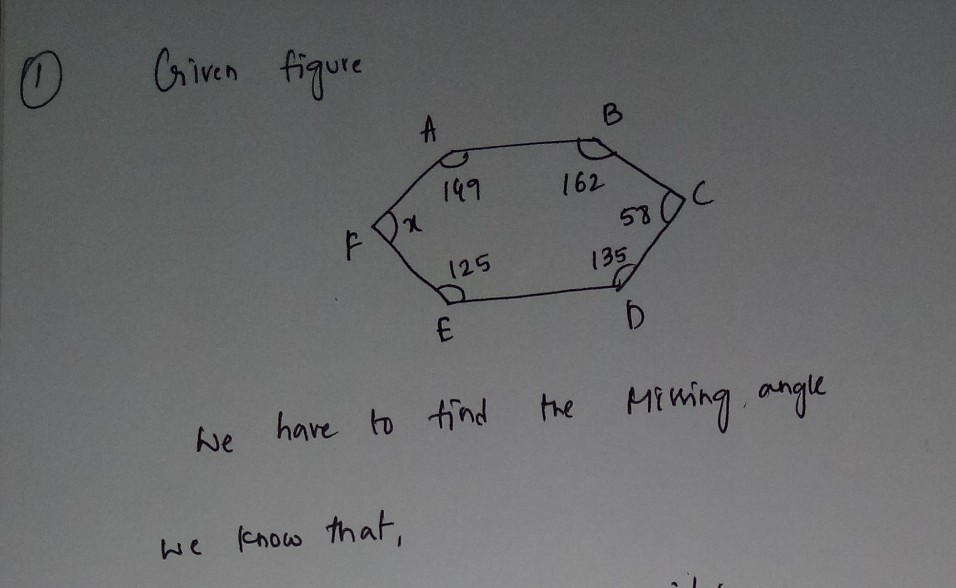 ① Given figure
A B
149 162
C
58
x
F
125 135
E D
We have to find the Missing angle
we know that,